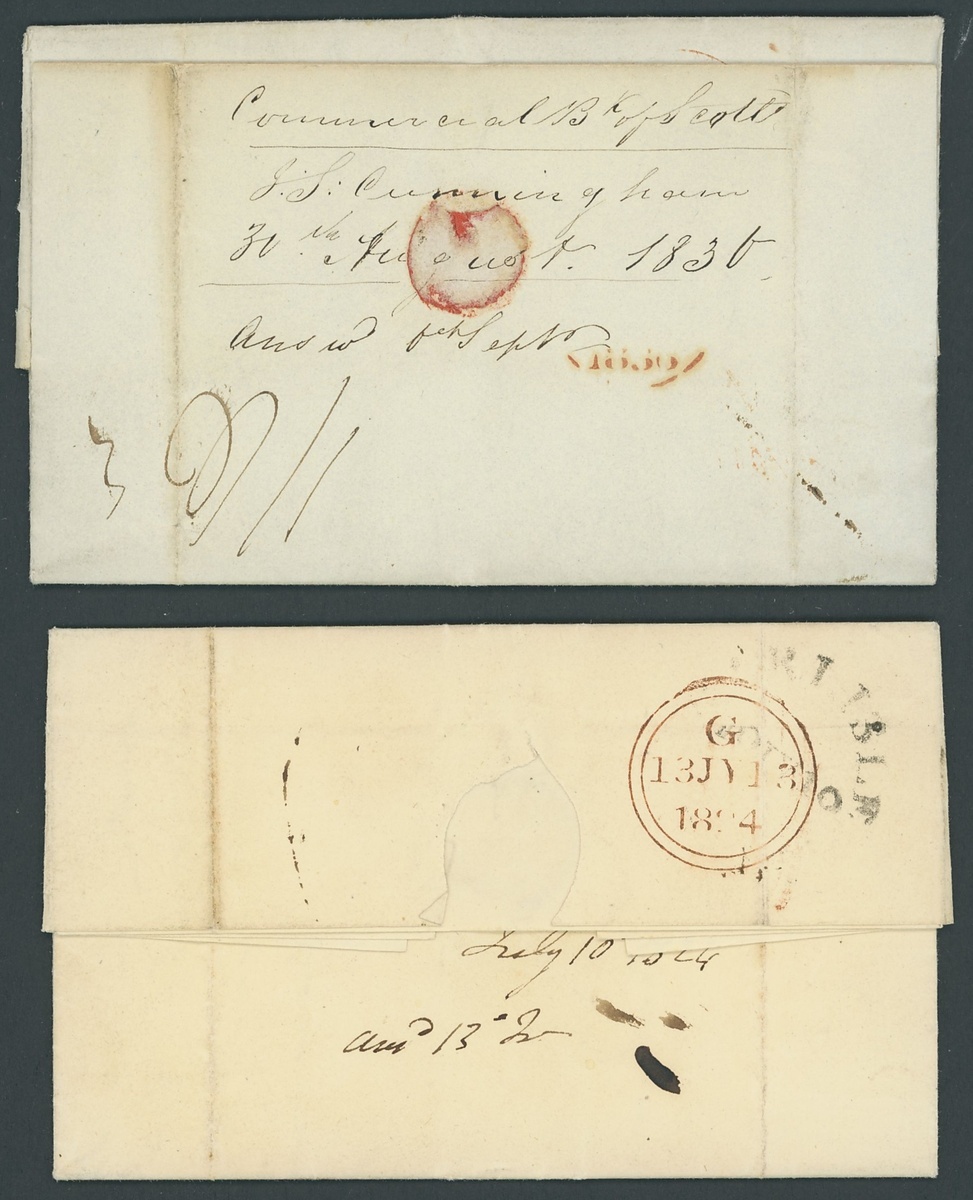 Commercial Bk of Scotld
J. S. Cunningham
30th August. 1830
Answd 6th Septr
G
13 JY 13
1824
July 10 1824
ansd 13